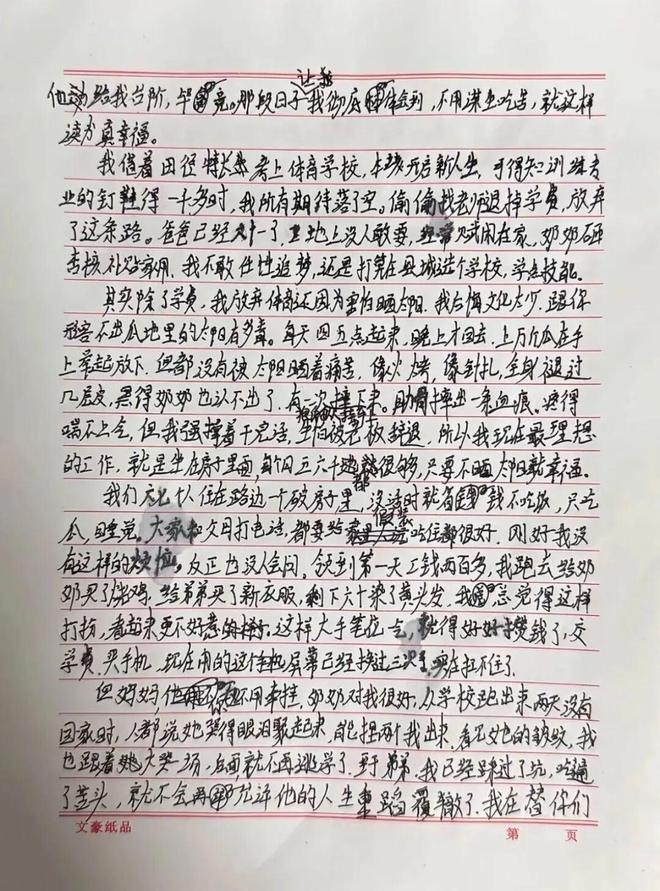 让我
他动给我台阶，毕竟。那段日子我彻底体会到，不用谋生吃苦，就这样
读书真幸福。
我借着田径特长考上体育学校，本该开启新人生，可得知训练专
业的钉鞋得一千多时，我所有期待落了空。偷偷找老师退掉学费，放弃
了这条路。爸爸已经六十一了，工地上没人敢要，经常赋闲在家，奶奶砸
杏核补贴家用，我不敢任性追梦，还是打算在县城选个学校，学点技能。
其实除了学费，我放弃体育还因为害怕晒太阳。我后悔文化太少，跟你
形容不出瓜地里的太阳有多毒。每天四五点起来，晚上才回去，上万个瓜在手
上举起放下，但都没有被太阳晒着痛苦，像火烧，像针扎，全身褪过
几层皮，黑得奶奶也认不出了。有一次摔下来，肋骨摔出一条血痕。疼得
喘不上气，但我强撑着干完活，生怕被老板辞退，所以我现在最理想
的工作，就是坐在房子里面，每个月五六千都很够，只要不晒太阳就幸福。
我们七个人住在路边一个破房子里，没活时就为省钱不吃饭，只吃
瓜、睡觉。大家和父母打电话，都要假装吃住都很好。刚好我没
有这样的烦恼。反正也没人会问，领到第一天工钱两百多，我跑去给奶
奶买了烧鸡，给弟弟买了新衣服，剩下六十染了黄头发，我总觉得这样
打扮，看起来更不好惹的样子，这样大手笔位之，就得好好攒钱了，交
学费、买手机，现在用的这个手机屏幕已经换过三次了，实在扛不住了。
但妈妈他不用牵挂，奶奶对我很好，从学校跑出来两天没有
回家时，人都说她哭得眼泪聚起来，能把两个我出来，看见她的皱纹，我
也跟着她大哭一场，后面就不再逃学了。至于弟弟，我已经踩过了坑，吃遍
了苦头，就不会再允许他的人生重蹈覆辙了。我在替你们
文豪纸品
第 页